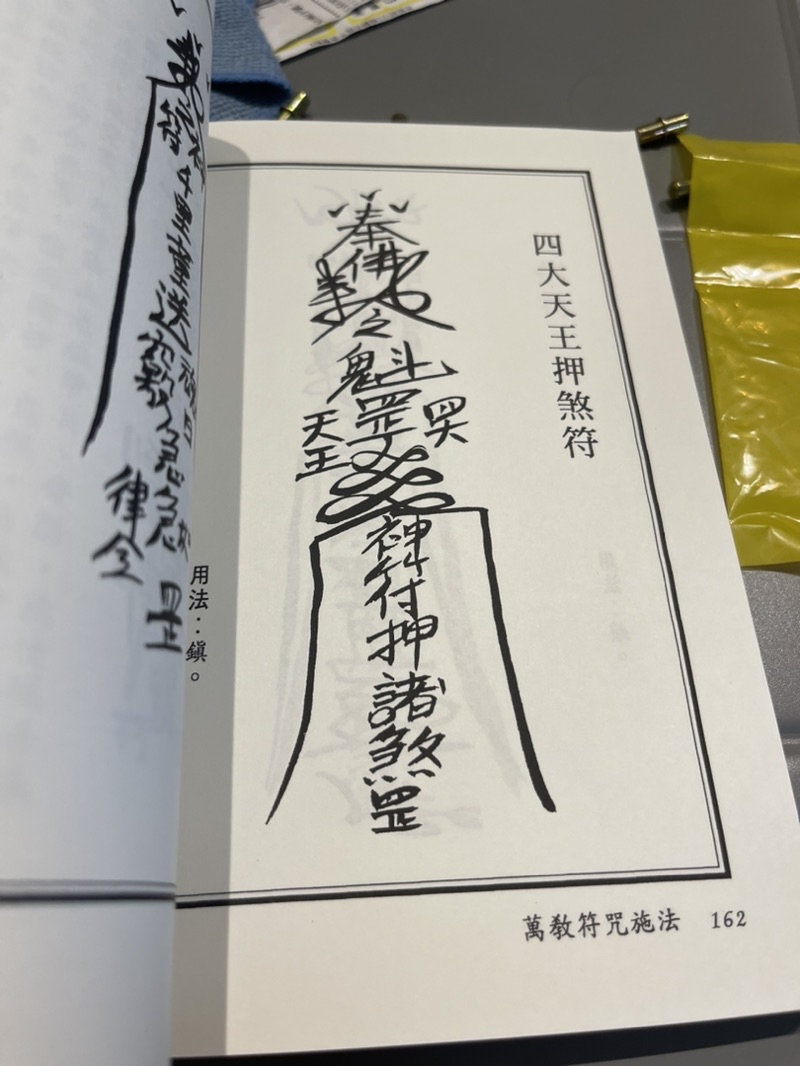 四大天王押煞符
奉佛
之
魁
罡
四大
天王
神符押諸煞罡
用法：鎮。
符千里
送
急急如
律令
罡
萬教符咒施法 162